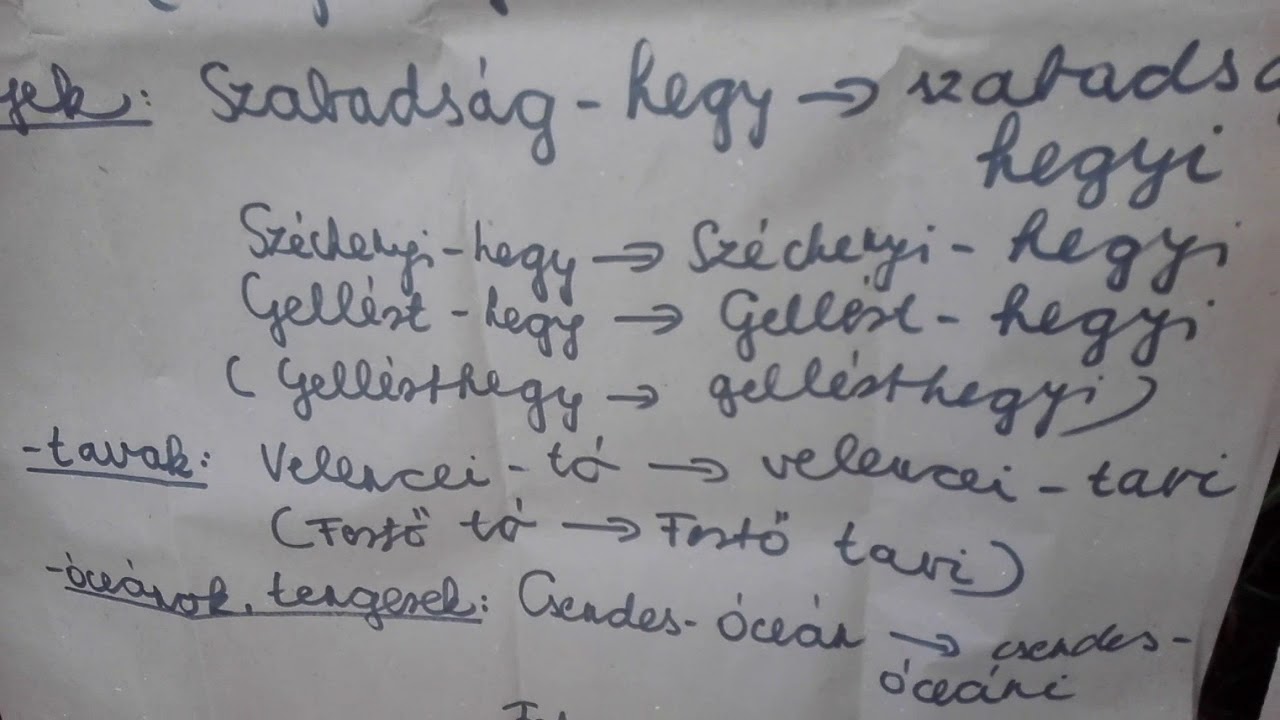 Szabadság-hegy → szabadsá
hegyi
Széchenyi-hegy → Széchenyi-hegyi
Gellért-hegy → Gellért-hegyi
(Gellérthegy → gellérthegyi)
-tavak: Velencei-tó → velencei-tavi
(Fertő tó → Fertő tavi)
-óceánok, tengerek: Csendes-óceán → csendes-
óceáni